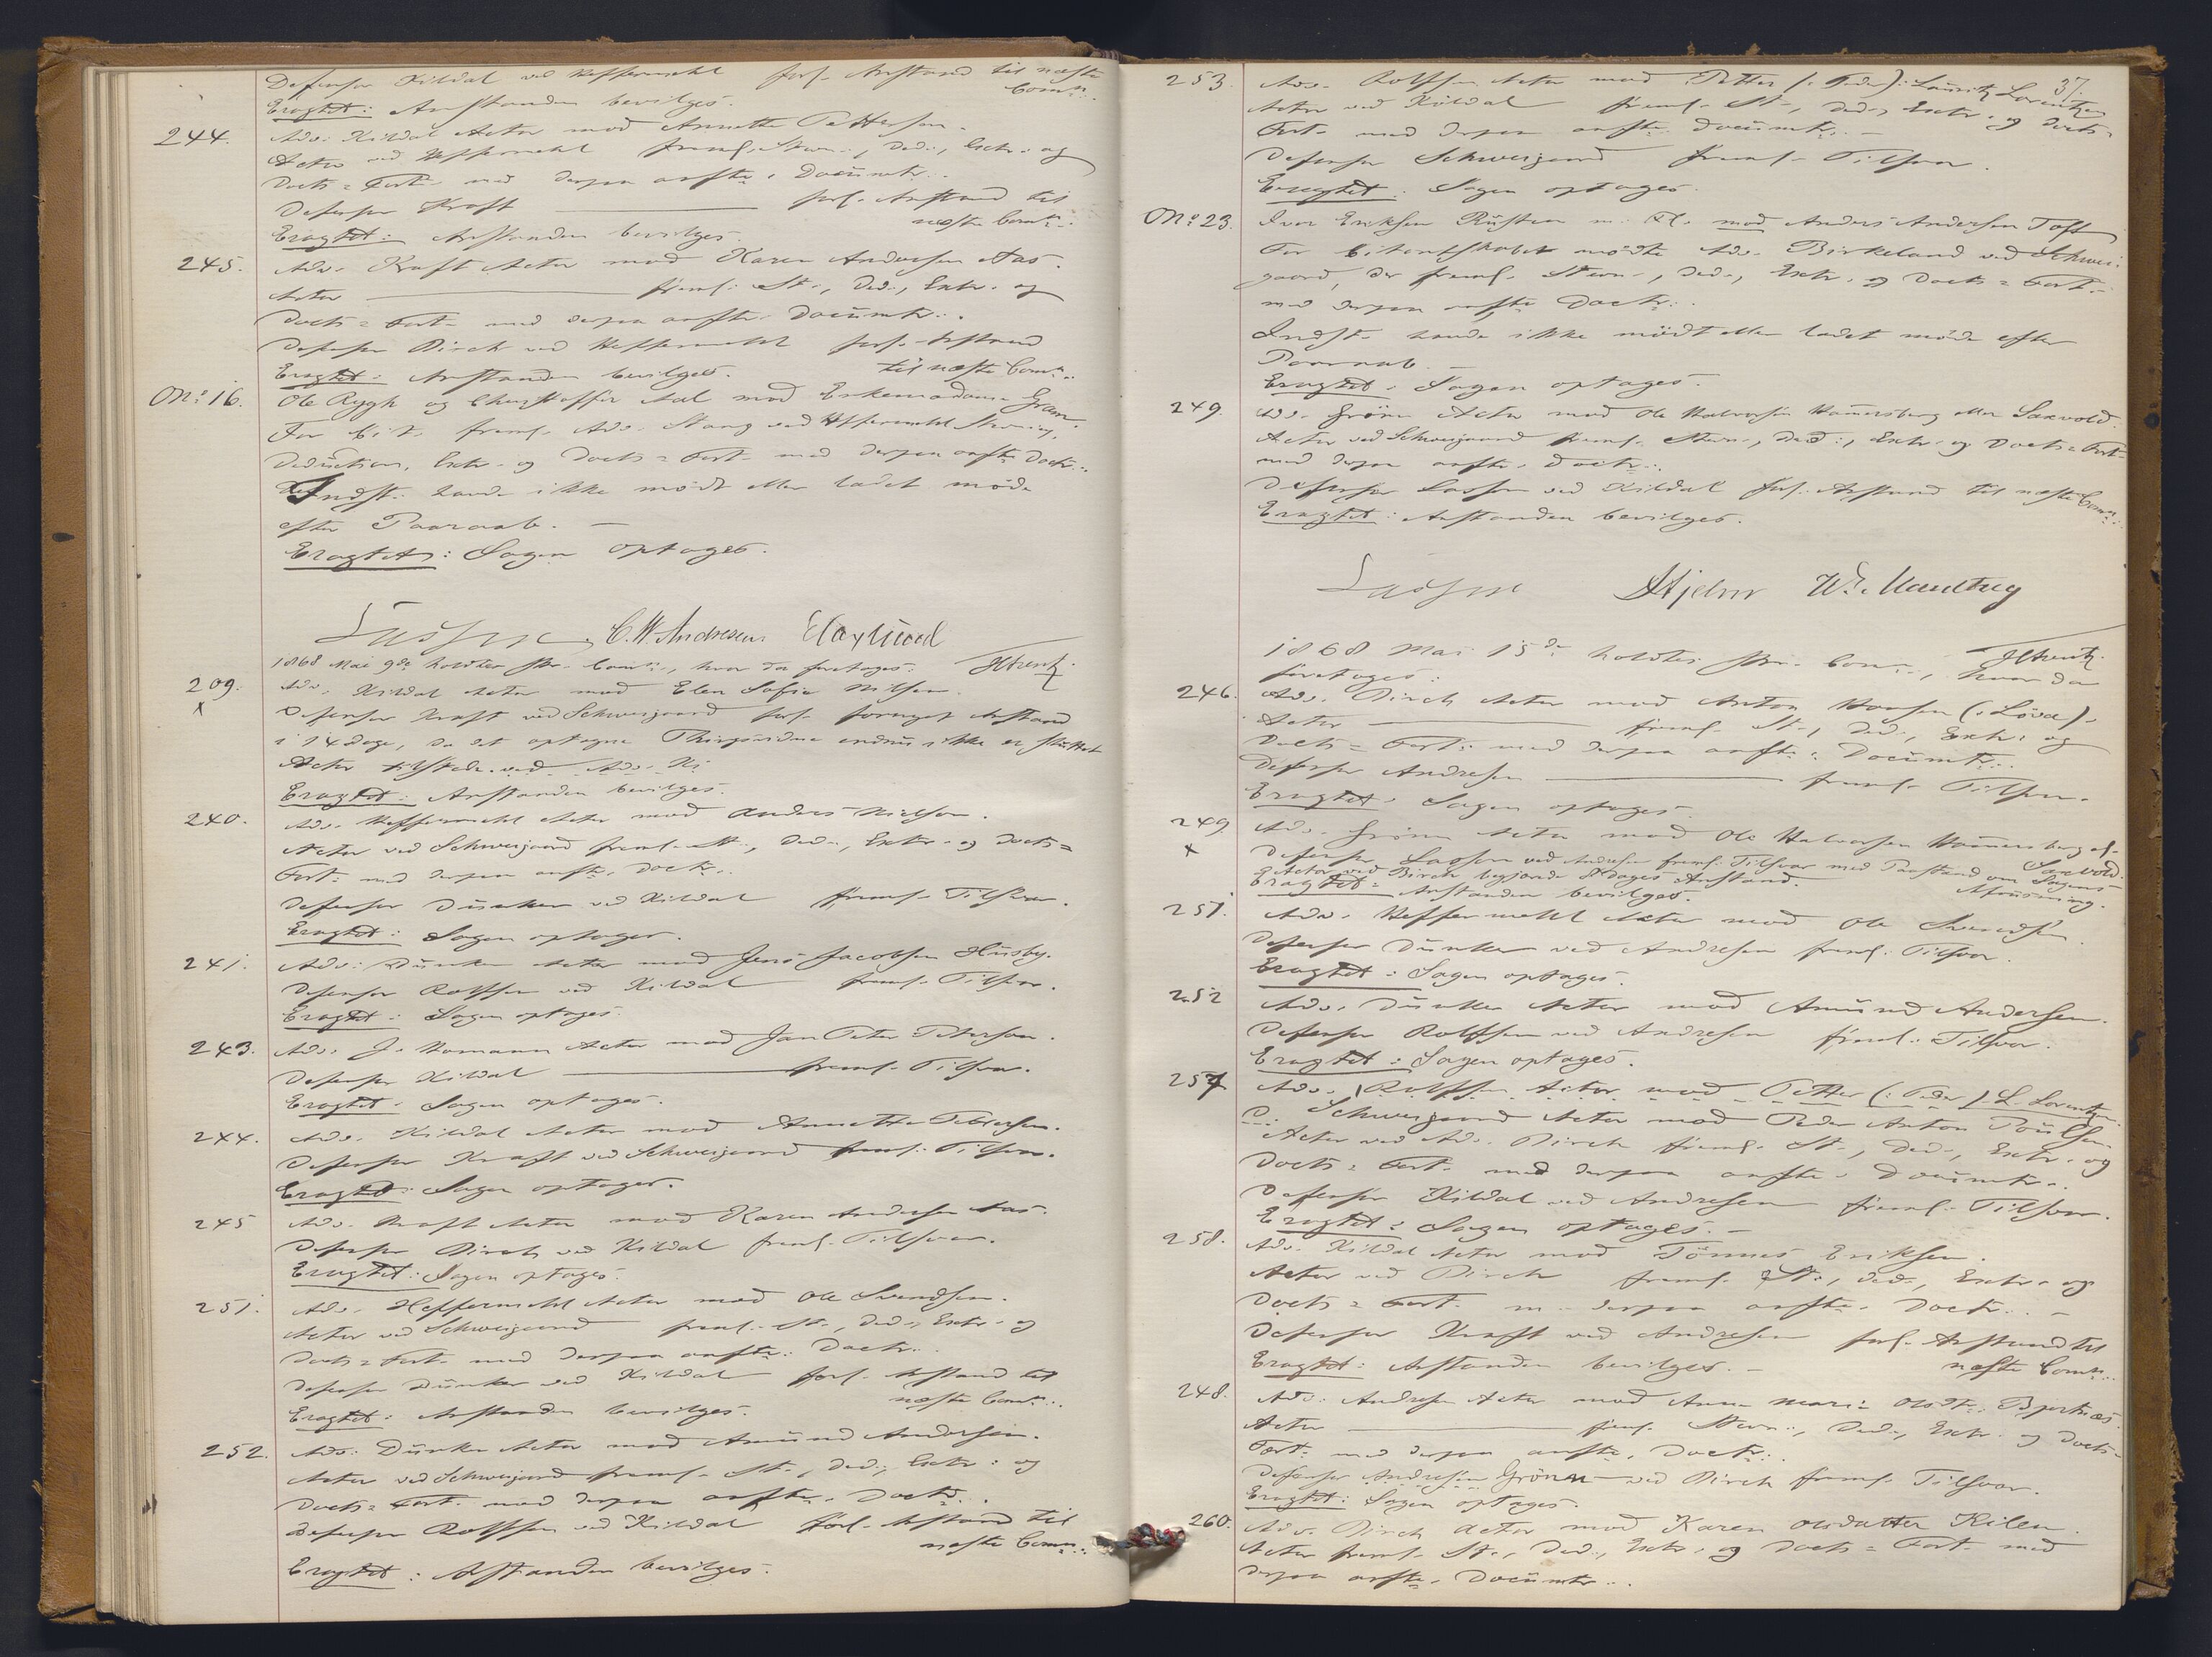 Defensor Kildal ved Heffermehl forl. Anstand til næste
Comm:.
Eragtet: Anstanden bevilges.
244. Adv. Kildal Actor mod Annette Pettersen.
Actor ved Heffermehl freml. Stevn:, Ded:, Extr: og
Docts= Fort. med derpaa anførte Documtr:.
Defensor Kraft forl. Anstand til
næste Comm:.
Eragtet: Anstanden bevilges.
245. Adv. Kraft Actor mod Karen Andersen Aas.
Actor freml. St:, Ded:, Extr. og
Docts= Fort. med derpaa anførte Documtr:.
Defensor Birch ved Heffermehl forl. Anstand
til næste Comm:.
Eragtet: Anstanden bevilges.
No: 16. Ole Rygh og Christoffer Aal mod Enkemadame Gram.
For Cit. freml. Adv. Stang ved Heffermehl Stevning,
Deduction, Extr. og Docts= Fort. med derpaa anførte Doctr:.
Indst. havde ikke mödt eller ladet möde
efter Paaraab. —
Eragtet: Sagen optages.
Lasson C. W. Andresen
1868 Mai 9de holdtes Comm:, hvor da foretages:
209. Adv. Kildal Actor mod Elen Sofie Nilsen.
x
Defensor Kraft ved Schweigaard forl. fornyet Anstand
i 14 dage, da det optagne Thingsvidne endnu ikke er sluttet
Actor tilstede ved Adv. Ki
Eragtet: Anstanden bevilges.
240. Adv. Heffermehl Actor mod Anders Nielsen.
Actor ved Schweigaard freml. St:, Ded:, Extr. og Docts=
Fort: med derpaa anførte Doctr.
Defensor Dunker ved Kildal freml. Tilsvar.
Eragtet: Sagen optages.
241. Adv. Dunker Actor mod Jens Jacobsen Husby.
Defensor Rolfsen ved Kildal freml. Tilsvar.
Eragtet: Sagen optages.
243. Adv. J. Homann Actor mod Jan Peter Peterson.
Defensor Kildal freml. Tilsvar.
Eragtet: Sagen optages.
244. Adv. Kildal Actor mod Annette Pettersen.
Defensor Kraft ved Schweigaard freml. Tilsvar.
Eragtet: Sagen optages.
245 Adv. Kraft Actor mod Karen Andersen Aas.
Defensor Birch ved Kildal freml. Tilsvar.
Eragtet: Sagen optages.
251. Adv. Heffermehl Actor mod Ole Svendsen.
Actor ved Schweigaard freml. St:, Ded:, Extr. og
Docts= Fort. med derpaa anførte: Doctr:.
Defensor Dunker ved Kildal forl. Anstand til
næste Comm:.
Eragtet: Anstanden bevilges.
252. Adv. Dunker Actor mod Amund Andersen.
Actor ved Schweigaard freml. St:, Ded:, Extr: og
Docts= Fort. med derpaa anførte Doctr:.
Defensor Rolfsen ved Kildal forl. Anstand til
næste Comm:.
Eragtet: Anstanden bevilges.
37.
253. Adv. Rolfsen Actor mod Petter (: Peder): Lauritz Lorentzen
Actor ved Kildal freml. St:, Ded:, Extr. og Docts=
Fort. med derpaa anførte Documtr:. —
Defensor Schweigaard freml. Tilsvar.
Eragtet: Sagen optages.
No: 23. Iver Eriksen Rusten m. Fl. mod Anders Andersen Toft
For Citantskabet mödte Adv. Birkeland ved Schwei=
gaard, der freml. Stevn:, Ded:, Extr. og Docts= Fort.
med derpaa anførte Doctr:.
Indst. havde ikke mödt eller ladet möde efter
Paaraab. —
Eragtet: Sagen optages.
249. Adv. Grönn Actor mod Ole Halvorsen Hammersberg eller Saxvold.
Actor ved Schweigaard freml. Stevn:, Ded:, Extr. og Docts= Fort.
med derpaa anførte Doctr:.
Defensor Lasson ved Kildal forl. Anstand til næste Comm:.
Eragtet: Anstanden bevilges.
Lasson Hjelm
1868 Mai 15de holdtes Comm:, hvor da
foretages:
246. Adv. Birch Actor mod Anton Hansen (: Löva).
Actor freml. St:, Ded:, Extr: og
Docts= Fort: med derpaa anførte: Documtr:.
Defensor Andresen freml. Tilsvar.
Eragtet: Sagen optages.
249 Adv. Grönn Actor mod Ole Halvorsen Hammersberg el.
x
Saxvold.
Defensor Lasson ved Andresen freml. Tilsvar med Paastand om Sagens
Afvisning.
Actor ved Birch begjærede 8 dages Anstand.
Eragtet: Anstanden bevilges.
251. Adv. Heffermehl Actor mod Ole Svendsen.
Defensor Dunker ved Andresen freml. Tilsvar.
Eragtet: Sagen optages.
252 Adv. Dunker Actor mod Amund Andersen.
Defensor Rolfsen ved Andresen freml: Tilsvar.
Eragtet: Sagen optages.
257 Adv. Rolfsen Actor mod Petter (: Peder) L. Lorentzen
Schweigaard Actor mod Peder Anton Poulsen.
Actor ved Adv. Birch freml. St:, Ded:, Extr. og
Docts= Fort. med derpaa anførte Documtr:.
Defensor Kildal ved Andresen freml. Tilsvar.
Eragtet: Sagen optages. —
258. Adv. Kildal Actor mod Tönnes Eriksen.
Actor ved Birch freml. St:, Ded:, Extr. og
Docts= Fort. m. derpaa anførte Doctr:. —
Defensor Kraft ved Andresen forl. Anstand til
næste Comm:.
Eragtet: Anstanden bevilges. —
248. Adv. Andresen Actor mod Anne Marie Olsdtr: Bjertnæs.
Actor freml. Stevn:, Ded:, Extr. og Docts=
Fort. med derpaa anførte Doctr:.
Defensor Andresen Grönn ved Birch freml. Tilsvar.
Eragtet: Sagen optages.
260. Adv. Birch Actor mod Karen Olsdatter Kilen.
Actor freml. St:, Ded:, Extr. og Docts= Fort. med
derpaa anførte Documtr:.